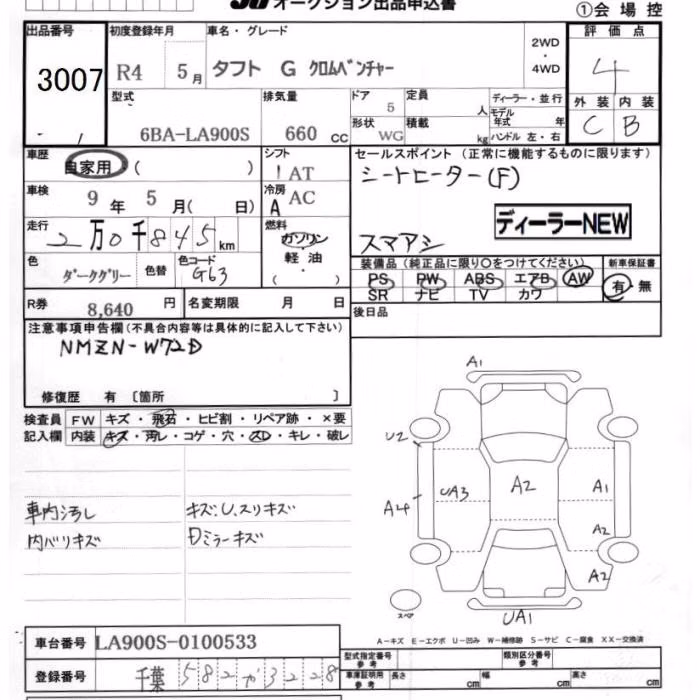 オークション出品申込書
①会場控
出品番号 初度登録年月 車名・グレード 2WD・4WD 評価点
3007 R4 5月 タフト G クロムベンチャー 4
型式 排気量 ドア 定員 ディーラー・並行 外装 内装
6BA-LA900S 660 cc 5 人 モデル年式 年 C B
形状 積載 ハンドル 左・右
WG kg
車歴 自家用 ( ) シフト 1 AT セールスポイント (正常に機能するものに限ります)
車検 9年 5月( 日) 冷房 A AC シートヒーター(F)
ディーラーNEW
走行 2万0千845km 燃料 ガソリン・軽油・( ) スマアシ
色 ダークグリー 色替 色コード G63 装備品 (純正品に限り○をつけてください) 新車保証書
PS PW ABS エアB AW 有・無
SR ナビ TV カワ
R券 8,640 円 名変期限 月 日 後日品
注意事項申告欄(不具合内容等は具体的に記入して下さい)
NMZN-W72D
修復歴 有 [箇所 ]
検査員 FW キズ・飛石・ヒビ割・リペア跡・×要
記入欄 内装 キズ・汚レ・コゲ・穴・スレ・キレ・破レ
車内汚レ キズ:U.スリキズ
内バリキズ Dミラーキズ
A1
U2
A4
UA3
A2
A1
A2
A2
UA1
スペア
A-キズ E-エクボ U-凹み W-補修跡 S-サビ C-腐食 XX-交換済
車台番号 LA900S-0100533
型式指定番号 参考 類別区分番号 参考
登録番号 千葉 582 か 3228
車庫証明用 参考 長さ cm 幅 cm 高さ cm